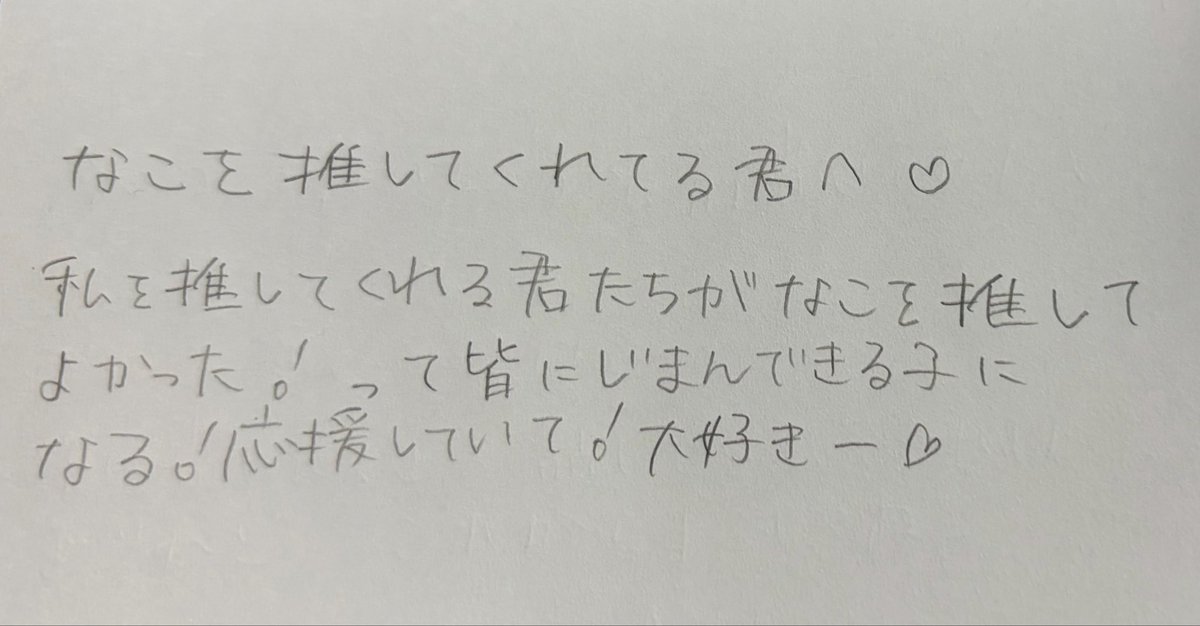 なこを推してくれてる君へ♡
私を推してくれる君たちがなこを推して
よかった!って皆にじまんできる子に
なる!応援していて!大好きー♡